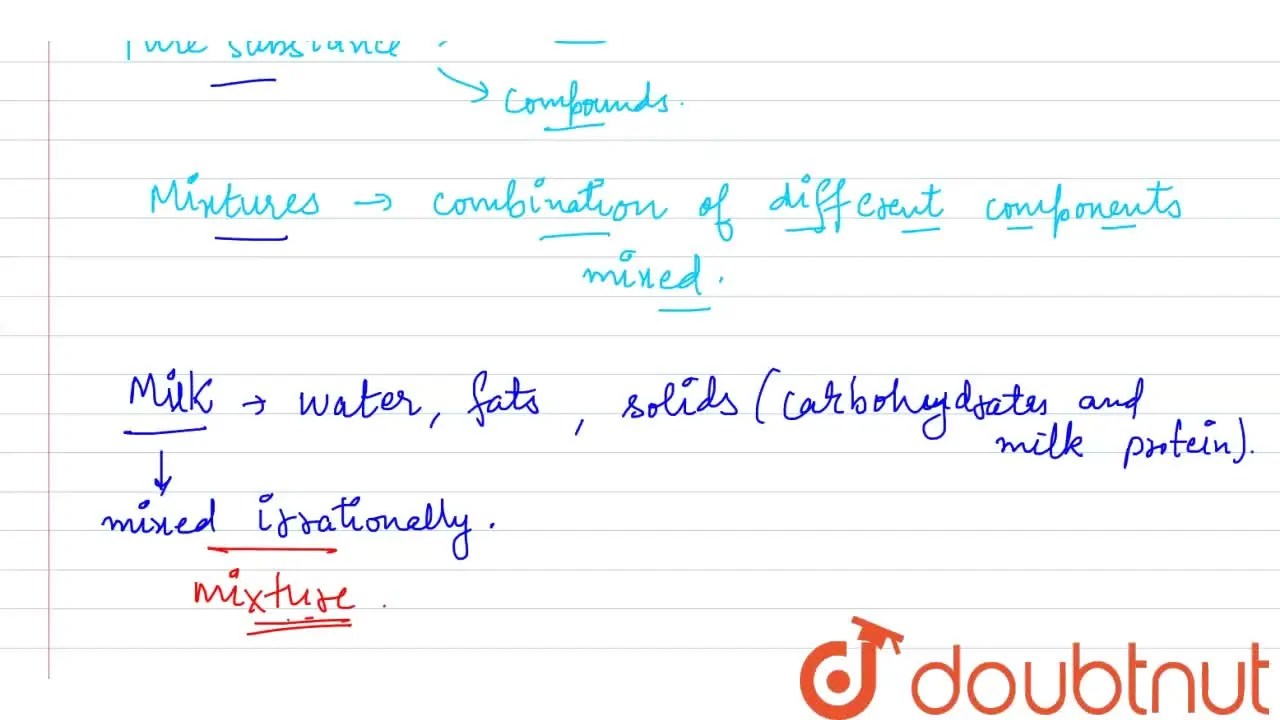 Pure substance :
→ compounds.
Mixtures → combination of different components
mixed.
Milk → water, fats, solids (carbohydrates and
milk protein).
↓
mixed irrationally.
mixture.
doubtnut